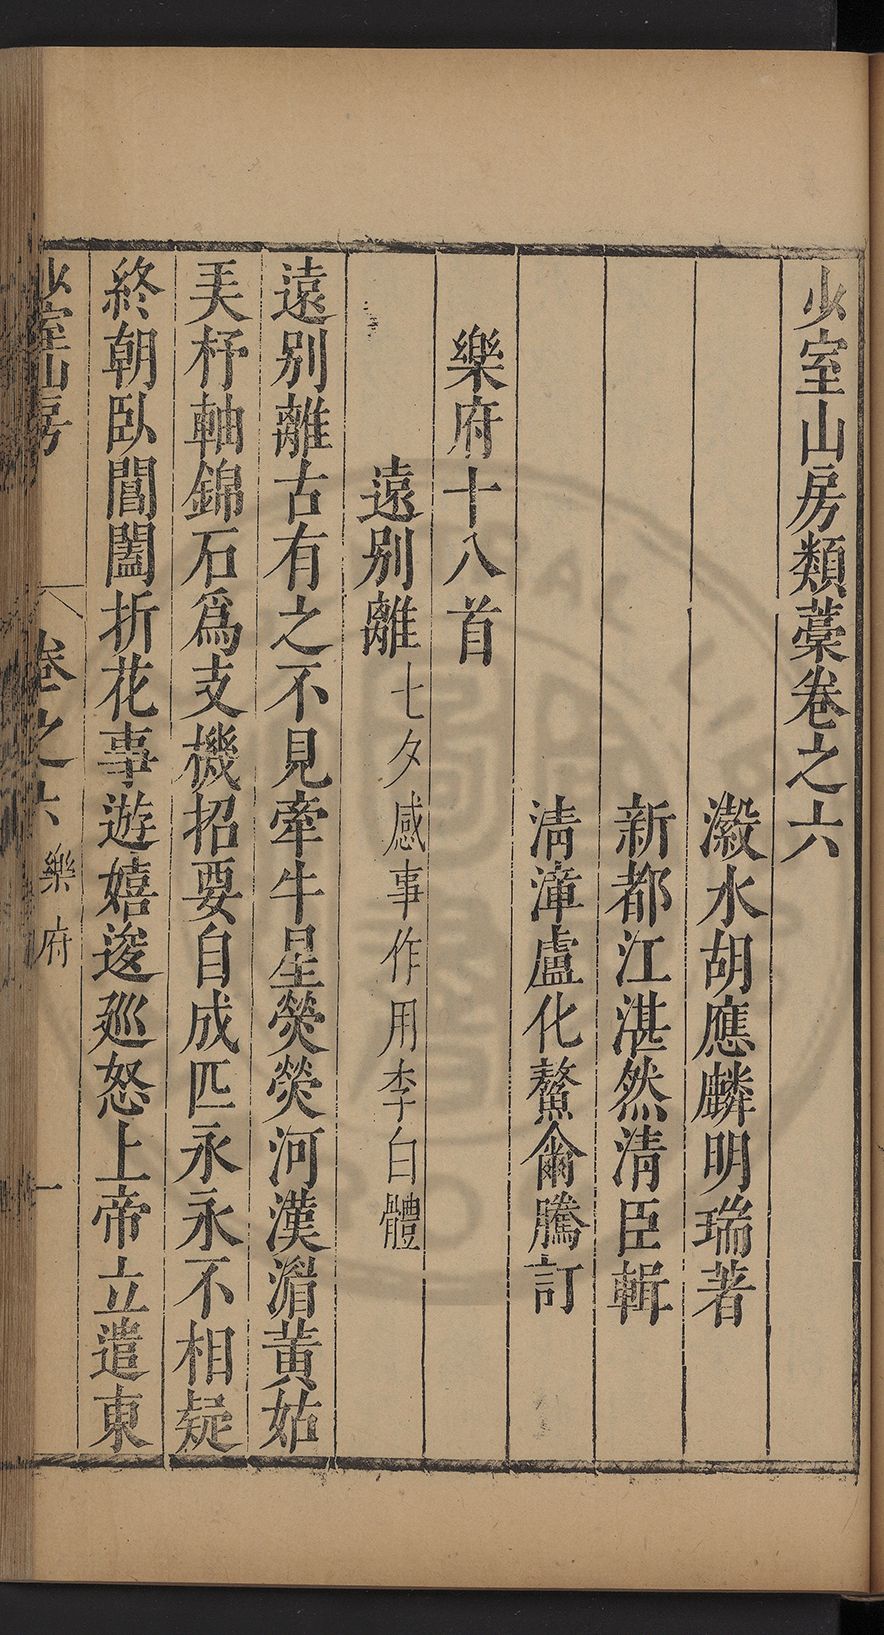 少室山房類藁卷之六
瀫水胡應麟明瑞著
新都江湛然清臣輯
清漳盧化鰲爾騰訂
樂府十八首
遠別離七夕感事作用李白體
遠別離古有之不見牽牛星熒熒河漢湄黃姑
美杼軸錦石爲支機招要自成匹永永不相疑
終朝臥閶闔折花事遊嬉逡廵怒上帝立遣東
少室山房 卷之六 樂府 一